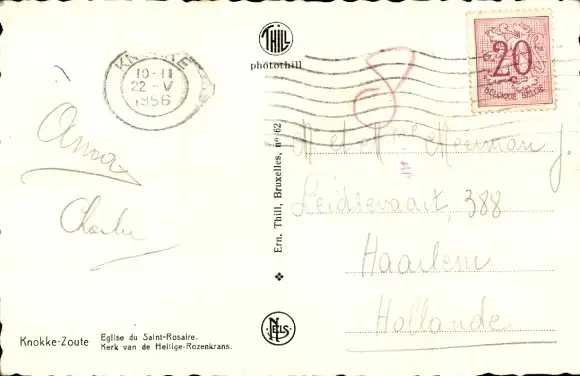 KNOKKE
10-11
22-V
1956
THILL
photothill
20
BELGIQUE BELGIE
Anna
Charles
Ern. Thill, Bruxelles, nº 62
M et Mme Meerman J.
Leidsevaart, 388
Haarlem
Hollande
NELS
Knokke-Zoute
Eglise du Saint-Rosaire.
Kerk van de Heilige-Rozenkrans.